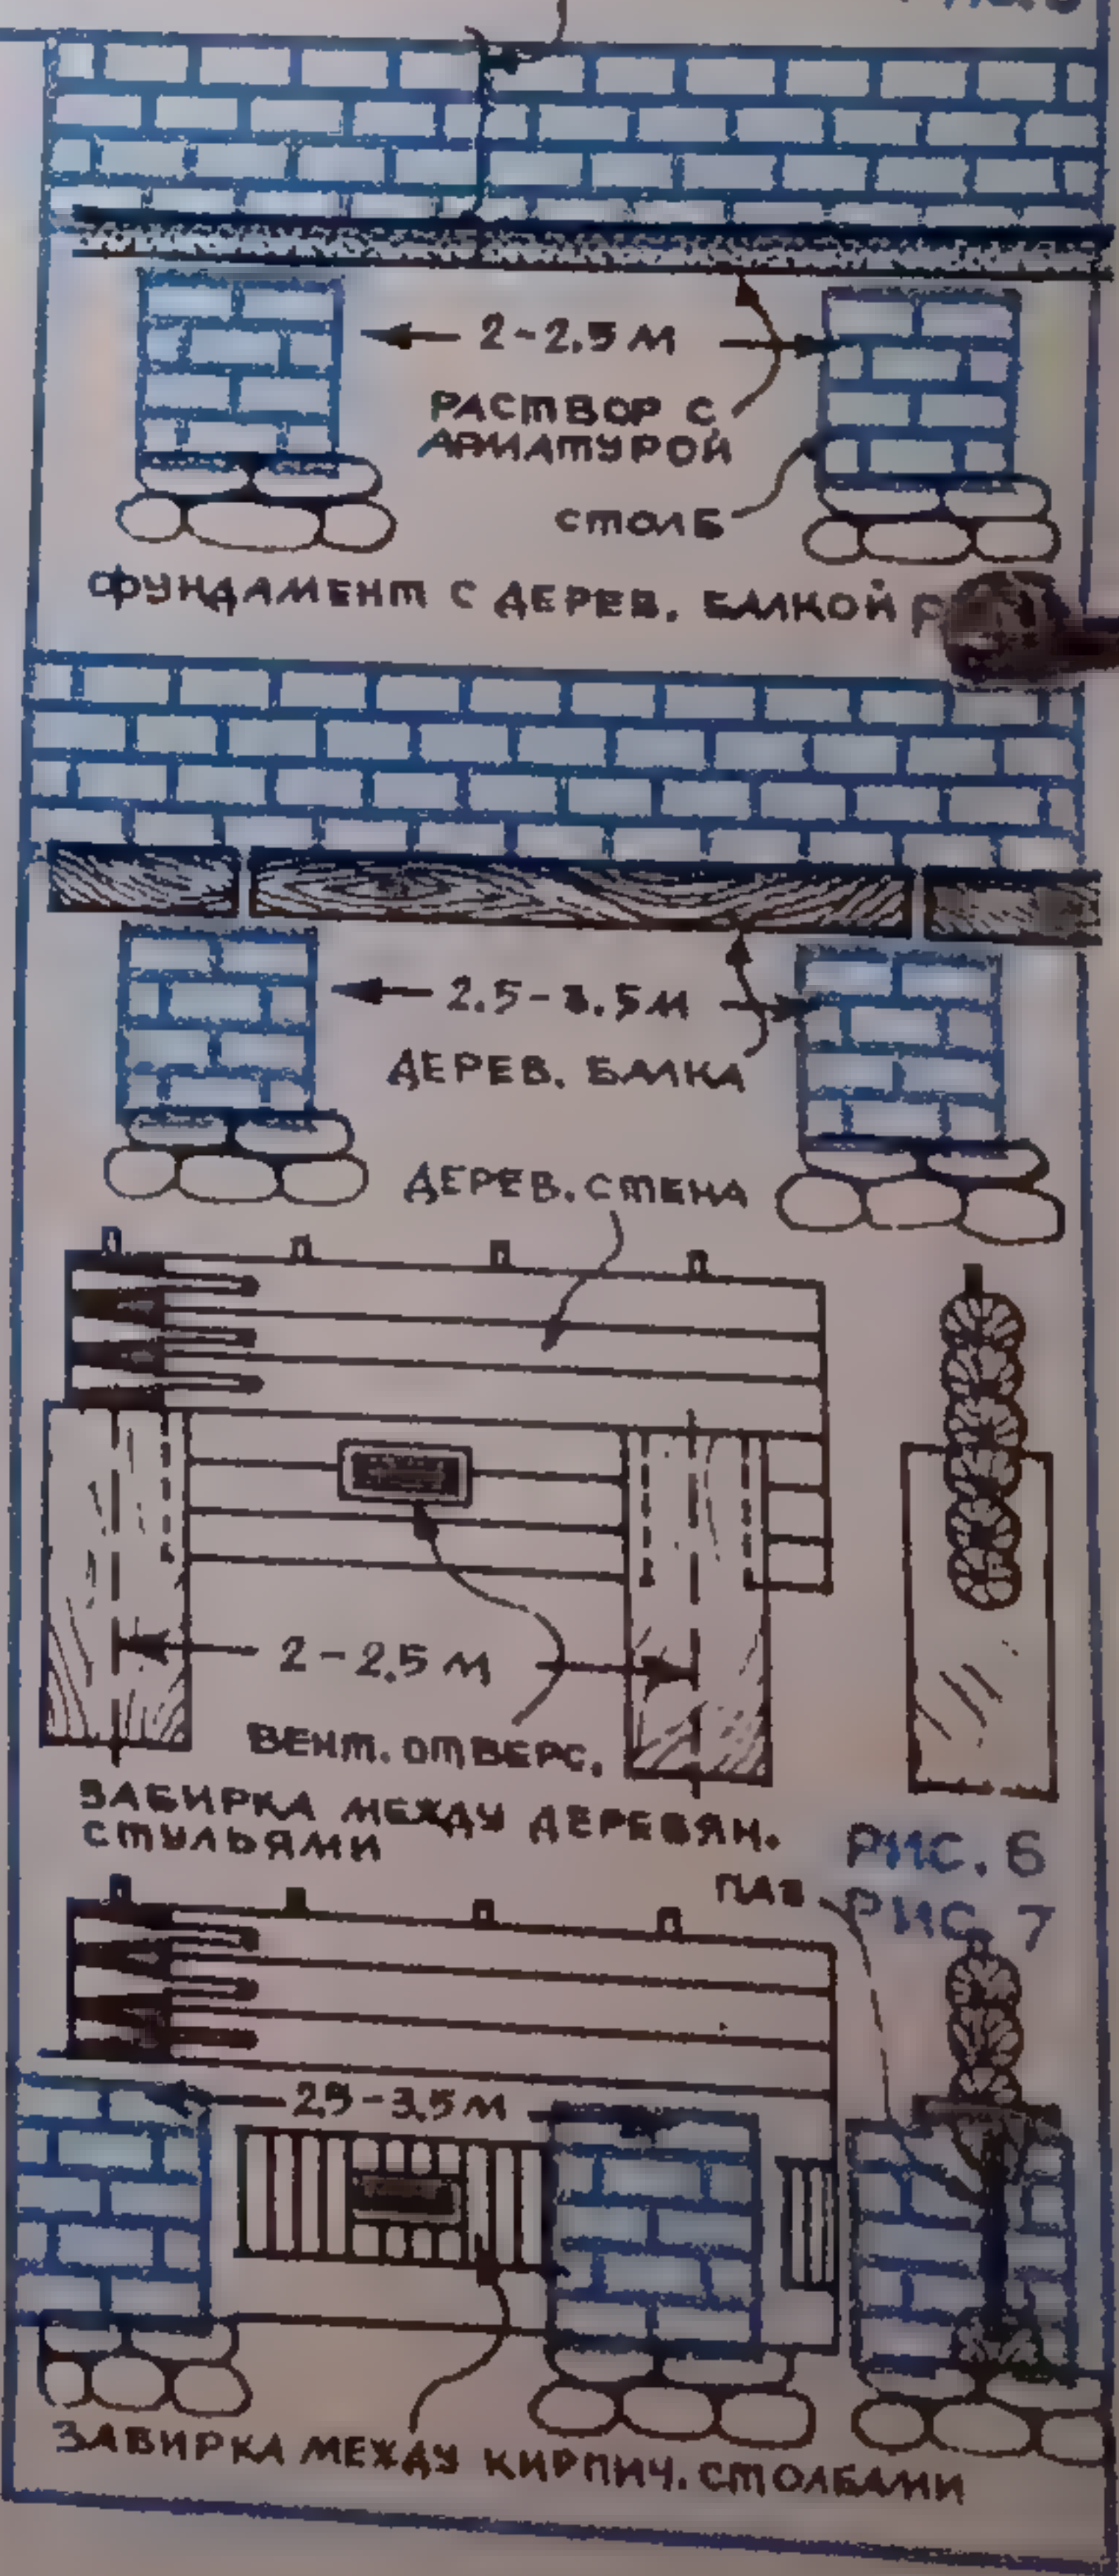 2-2.5 М
РАСТВОР С
АРМАТУРОЙ
СТОЛБ
ФУНДАМЕНТ С ДЕРЕВ. БАЛКОЙ
2.5-3.5 М
ДЕРЕВ. БАЛКА
ДЕРЕВ. СТЕНА
2-2.5 М
ВЕНТ. ОТВЕРС.
ЗАБИРКА МЕЖДУ ДЕРЕВЯН.
СТУЛЬЯМИ
РИС. 6
ПАЗ
РИС. 7
2.5-3.5 М
ЗАБИРКА МЕЖДУ КИРПИЧ. СТОЛБАМИ